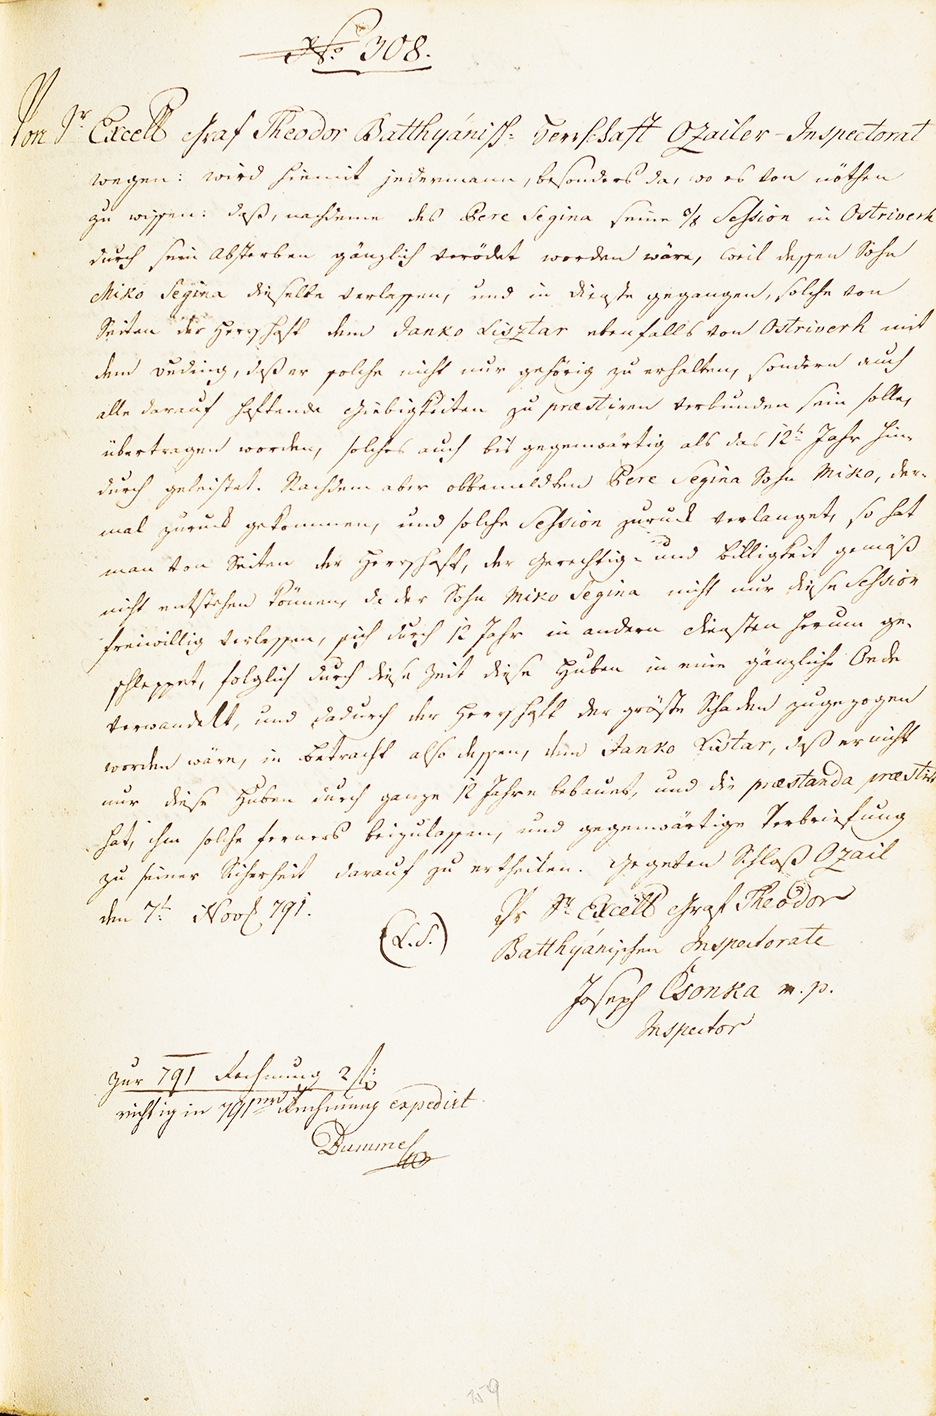 No. 308.
Von Sr. Excell Graf Theodor Batthyániss: Herrschaft Ozailer-Inspectorat
wegen: wird hiemit jedermann, besonders da, wo es von nöthen
zu wissen: daß, nachdeme des Pere Segina seine 6/8 Session in Ostriverh
durch sein Absterben gänzlich verödet worden wäre, weil dessen Sohn
Miko Segina dieselbe verlassen, und in Dienste gegangen, solche von
Seiten der Herrschaft dem Janko Lisztar ebenfalls von Ostriverh mit
dem Beding, daß er solche nicht nur gehörig zu erhalten, sondern auch
alle darauf haftende Giebigkeiten zu præstiren verbunden sein solle,
übertragen worden, solches auch bis gegenwärtig als das 12te Jahr hin-
durch geleistet. Nachdem aber obbemeldten Pere Segina Sohn Miko, der-
mal zuruck gekommen, und solche Session zuruck verlanget, so hat
man von Seiten der Herrschaft, der Gerechtig- und Billigkeit gemäß
nicht entstehen können, da der Sohn Miko Segina nicht nur diese Session
freiwillig verlassen, sich durch 12 Jahr in andern Diensten herum ge-
schleppet, folglich durch diese Zeit diese Huben in eine gänzliche Oede
verwandelt, und dadurch der Herrschaft der gröste Schaden zugezogen
worden wäre, in Betracht also dessen, dem Janko Listar, daß er nicht
nur diese Huben durch ganze 12 Jahre bebauet, und die præstanda præstirt
hat, ihm solche ferners beizulassen, und gegenwärtige Verbriefung
zu seiner Sicherheit darauf zu ertheilen. Gegeben Schloß Ozail
den 7t. Novb 791.
(L.S.)
Pr Sr. Excell Graf Theodor
Batthyánischen Inspectorate
Joseph Csonka m.p.
Inspector
Zur 791 Rechnung 2 f
richtig in 791ner Rechnung expedirt
259